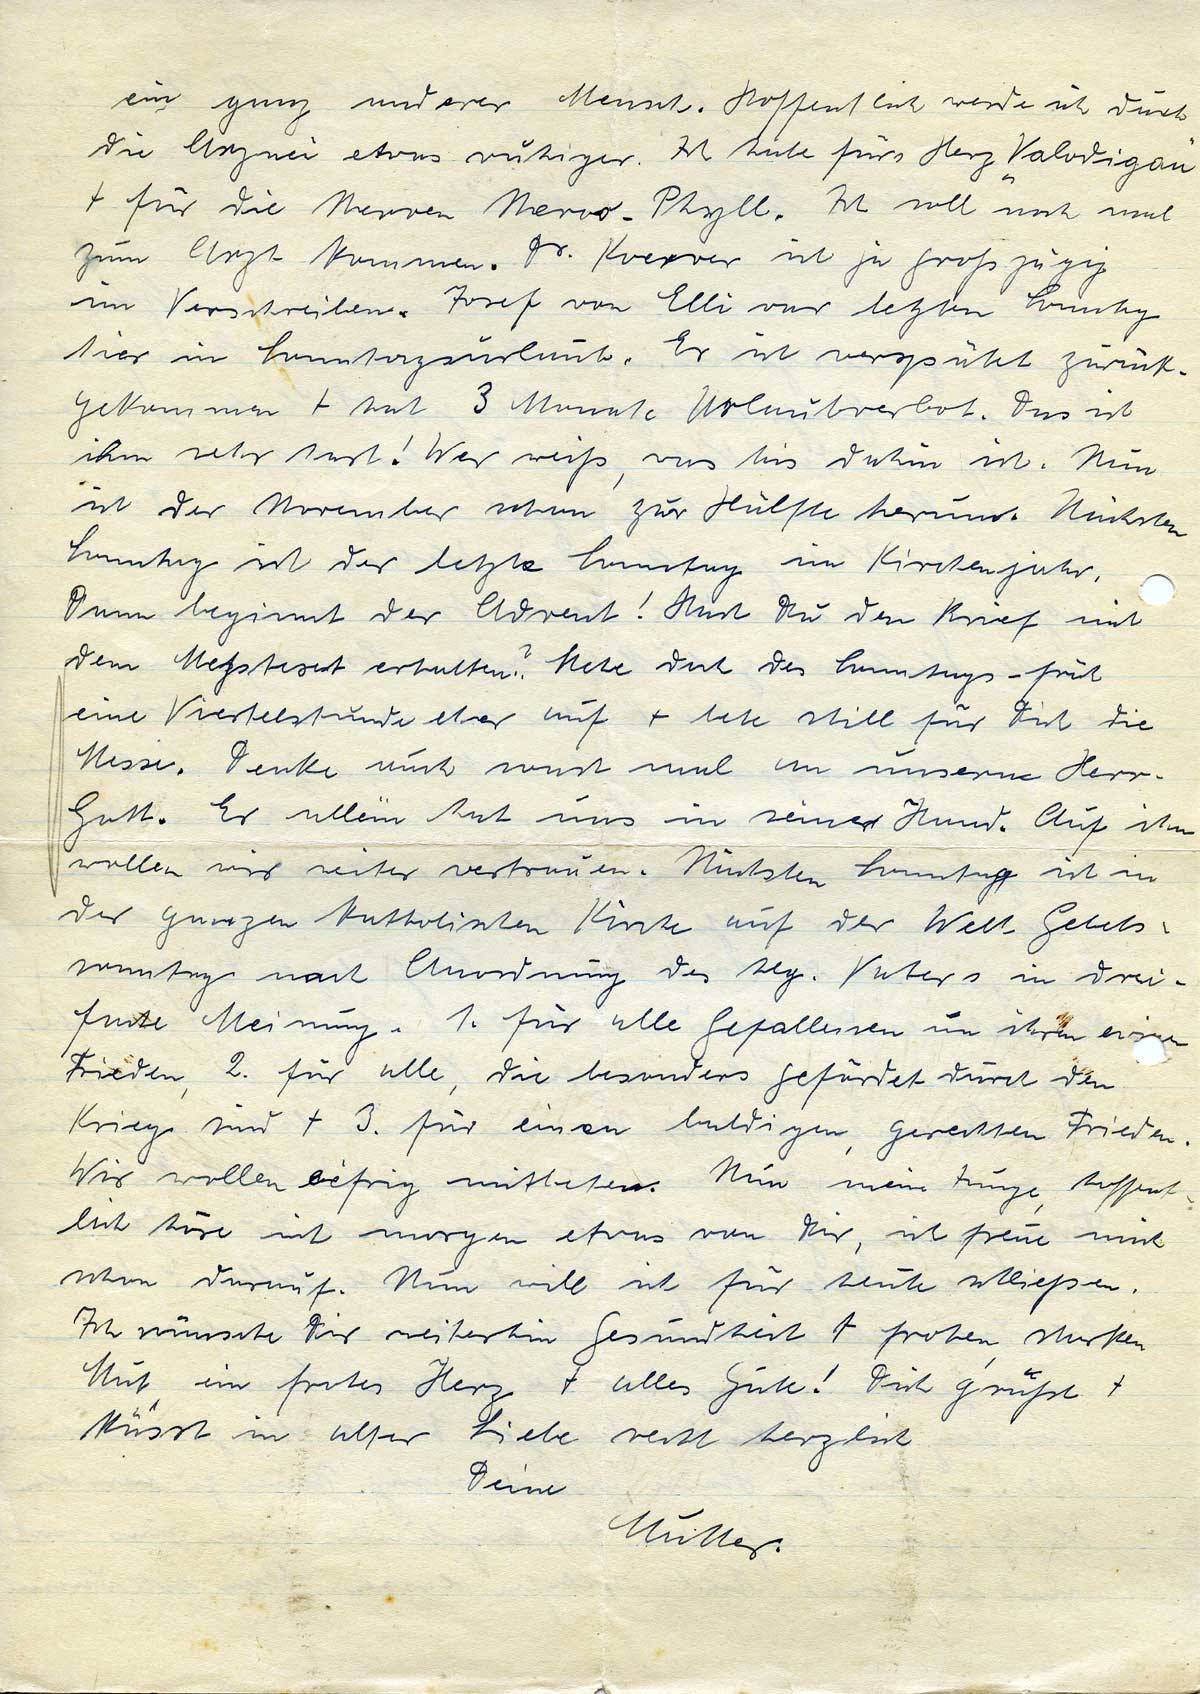 ein ganz anderer Mensch. Hoffentlich werde ich durch
die Arznei etwas ruhiger. Ich habe fürs Herz „Valodigan
+ für die Nerven Nervo-Phyll. Ich soll noch mal
zum Arzt kommen. Dr. ist ja großzügig
im Verschreiben. Josef von Elli war letzten Sonntag
hier in Sonntagsurlaub. Er ist verspätet zurück-
gekommen + hat 3 Monate Urlaubverbot. Das ist
ihm sehr hart! Wer weiß, was bis dahin ist. Nun
ist der November schon zur Hälfte herum. Nächsten
Sonntag ist der letzte Sonntag im Kirchenjahr.
Dann beginnt der Advent! Hast Du den Brief mit
dem Meßtext erhalten? Stehe doch des Sonntags-früh
eine Viertelstunde eher auf + bete still für Dich die
Messe. Denke auch sonst mal an unseren Herr-
Gott. Er allein hat uns in seiner Hand. Auf ihn
wollen wir weiter vertrauen. Nächsten Sonntag ist in
der ganzen katholischen Kirche auf der Welt Gebets-
sonntag nach Anordnung des hlg. Vaters in drei-
facher Meinung. 1. für alle Gefallenen um ihren ewigen
Frieden, 2. für alle, die besonders gefärdet durch den
Krieg sind + 3. für einen baldigen, gerechten Frieden.
Wir wollen eifrig mitbeten. Nun mein Junge, hoffent-
lich höre ich morgen etwas von Dir, ich freue mich
schon darauf. Nun will ich für heute schließen.
Ich wünsche Dir weiterhin Gesundheit + frohen, starken
Mut, ein frohes Herz + alles Gute! Dich grüßt +
küsst in alter Liebe recht herzlich
Deine
Mutter.